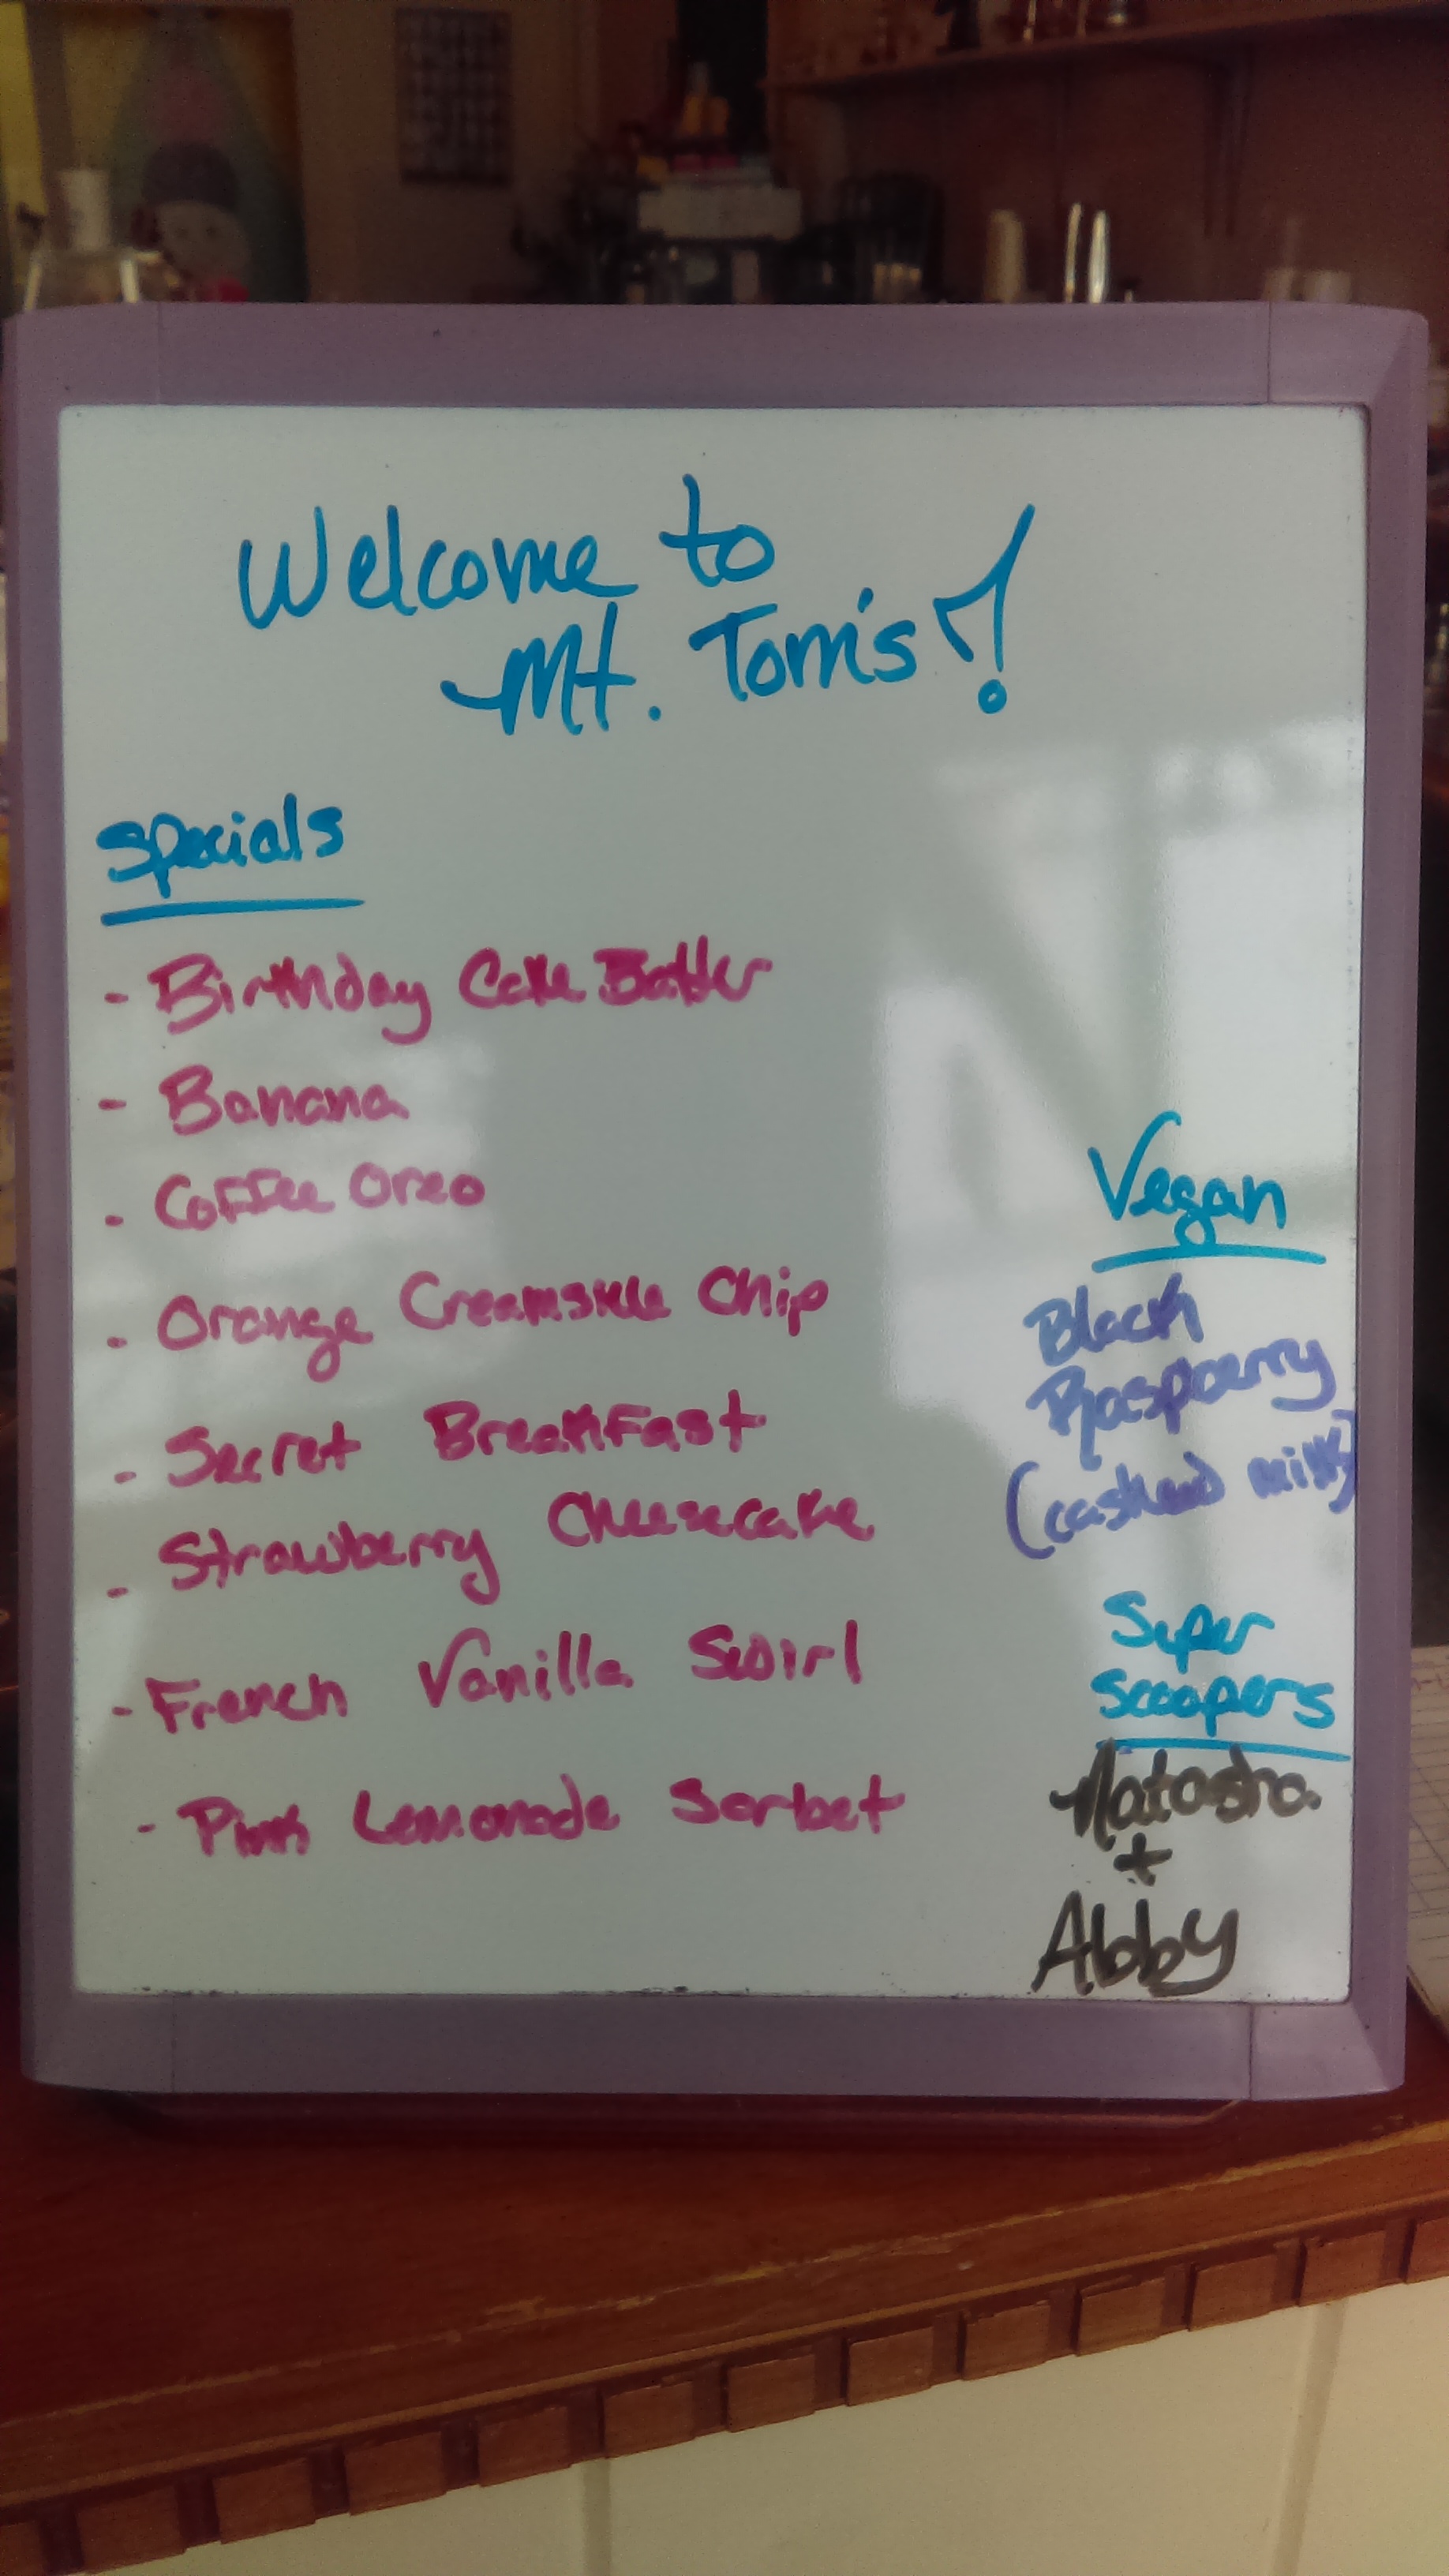 Welcome to
Mt. Tom's!
Specials
- Birthday Cake Batter
- Banana
- Coffee Oreo
- Orange Creamsicle Chip
- Secret Breakfast
- Strawberry Cheesecake
- French Vanilla Swirl
- Pink Lemonade Sorbet
Vegan
Black
Raspberry
(cashew milk)
Super
Scoopers
Natasha
+
Abby